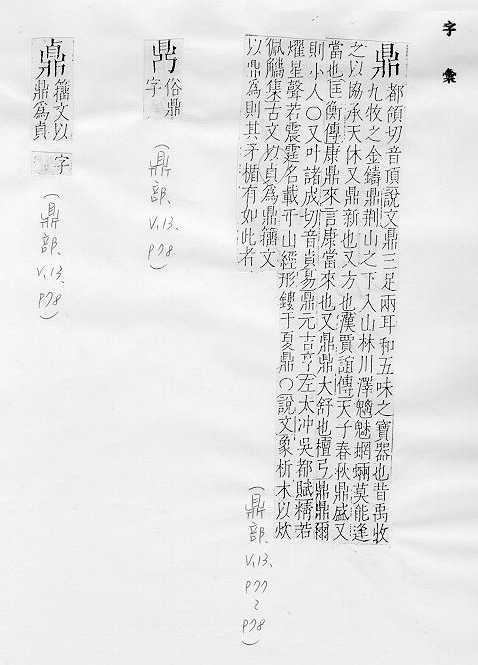 字彙
鼎 都領切音頂說文鼎三足兩耳和五味之寶器也昔禹收
九牧之金鑄鼎荆山之下入山林川澤魑魅蝄蜽莫能逢
之以協承天休又鼎新也又方也漢賈誼傳天子春秋鼎盛又
當也匡衡傳康鼎來言康當來也又鼎鼎大舒也檀弓鼎鼎爾
則小人〇又叶諸成切音貞易鼎元吉亨左太冲吳都賦精若
燿星聲若震霆名載于山經形鏤于夏鼎〇說文象析木以炊
佩觿集古文以貞爲鼎籀文
以鼎爲則其矛楯有如此者
(鼎部、V.13、P77~P78)
俗鼎
字
(鼎部、V.13、P78)
籀文以
鼎爲貞
字
(鼎部、V.13、P78)